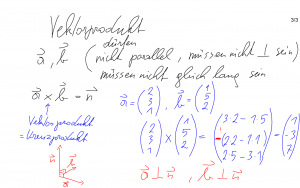 Vektorprodukt
dürfen
a⃗, b⃗ (nicht parallel, müssen nicht ⊥ sein)
müssen nicht gleich lang sein
a⃗ × b⃗ = n⃗
Vektorprodukt
= Kreuzprodukt
a⃗ = (2 3 1), b⃗ = (1 5 2)
(2 3 1) × (1 5 2) = (3·2 − 1·5
2·2 − 1·1
2·5 − 3·1) = (1 −3 7)
a⃗ ⊥ n⃗, b⃗ ⊥ n⃗
n⃗
b⃗
a⃗